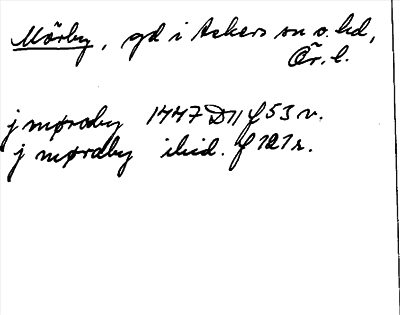 Mörby, gd i Ackers sn o. hd,
Ör. l.
j møroby 1447 D11 f 53 v.
j mørdby ibid. f 121 r.